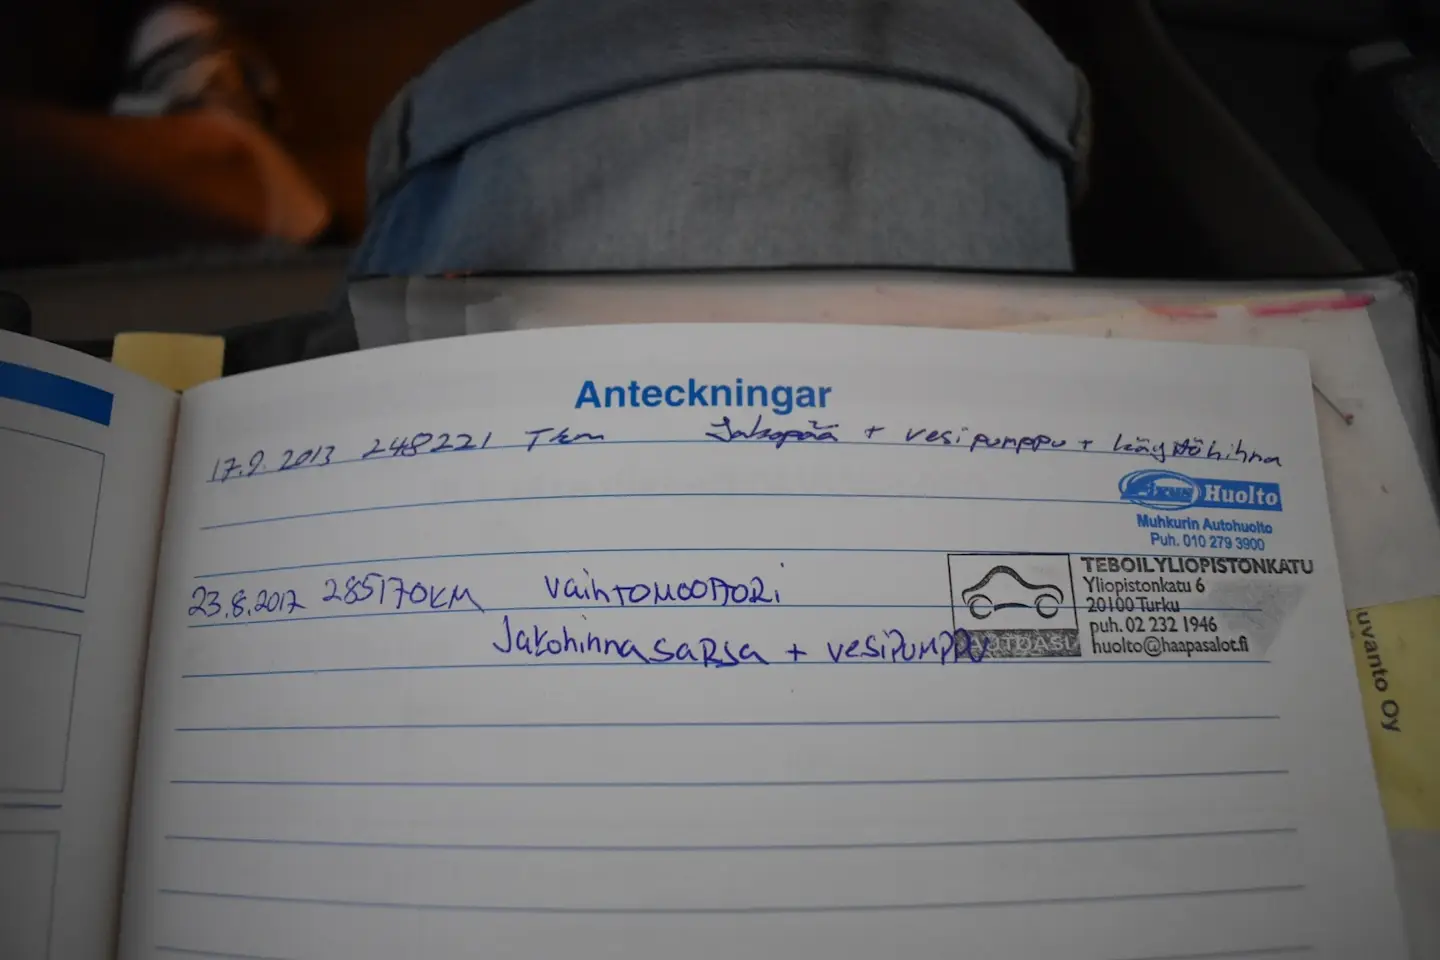 Anteckningar
17.9.2013 248221 Tkm Jakopää + vesipumppu + käyttöhihna
Huolto
Muhkurin Autohuolto
Puh. 010 279 3900
23.8.2017 285170KM VaihTOMOOTTORi
JakohihnasaRsa + vesiPUMPPU
AUTOASI
TEBOILYLIOPISTONKATU
Yliopistonkatu 6
20100 Turku
puh. 02 232 1946
huolto@haapasalot.fi
uvanto Oy